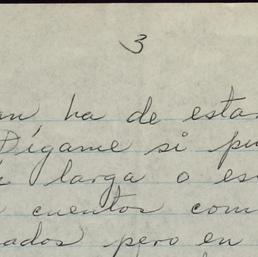 3
an ha de esta
Dígame si pu
larga o es
cuentos com
ados pero en